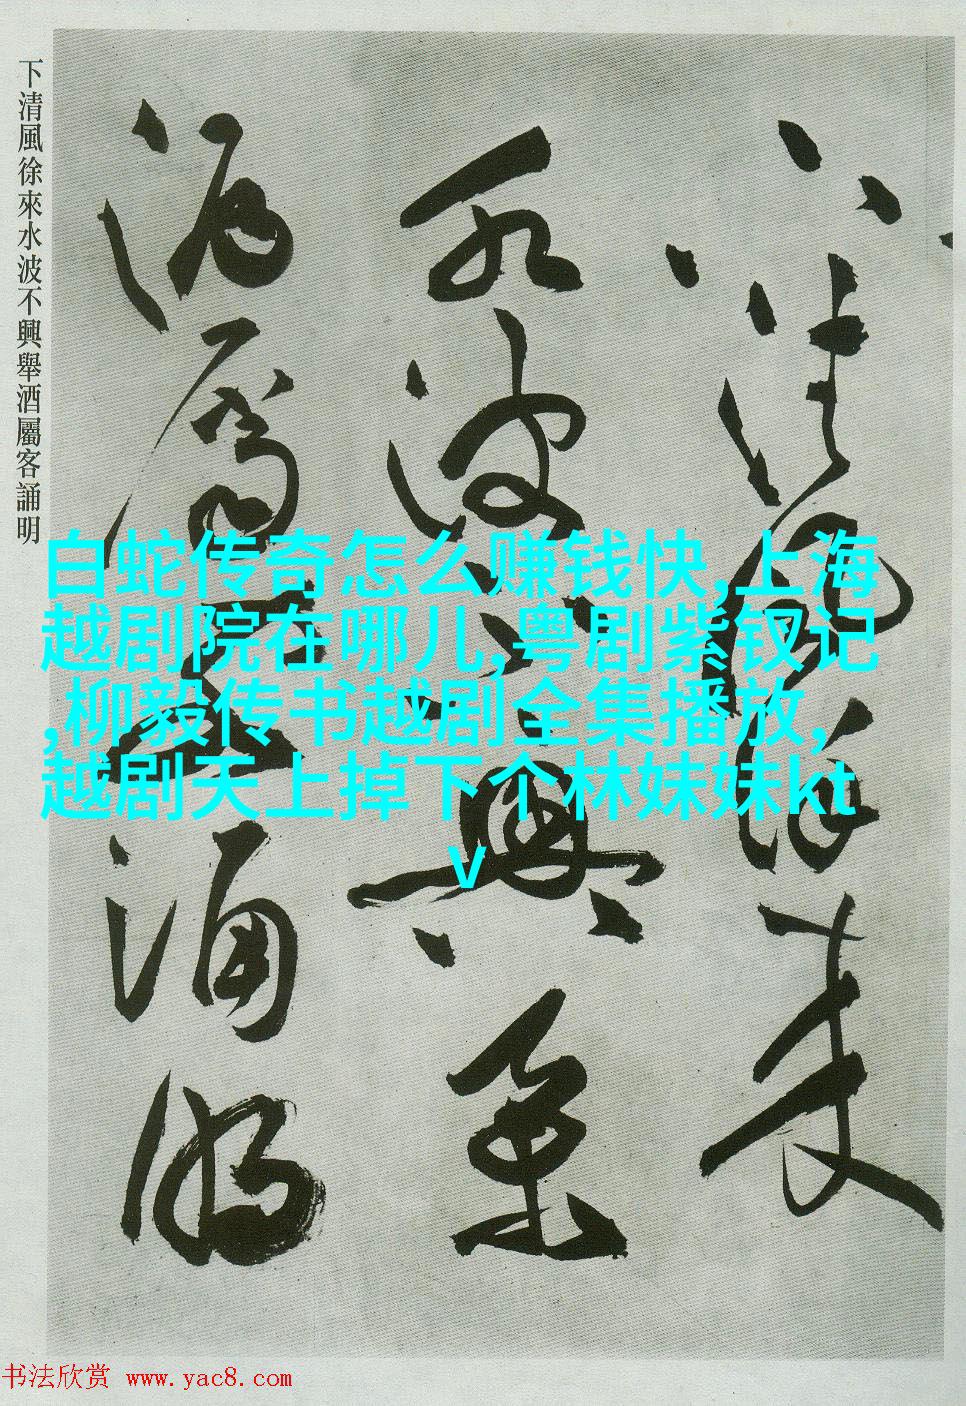 下清風徐來水波不興舉酒屬客誦明
下清風徐來
水波不興舉
酒屬客誦明
白蛇传奇怎么赚钱快,上海
越剧院在哪儿,粤剧紫钗记
,柳毅传书越剧全集播放,
越剧天上掉下个林妹妹kt
v
书法欣赏 www.yac8.com